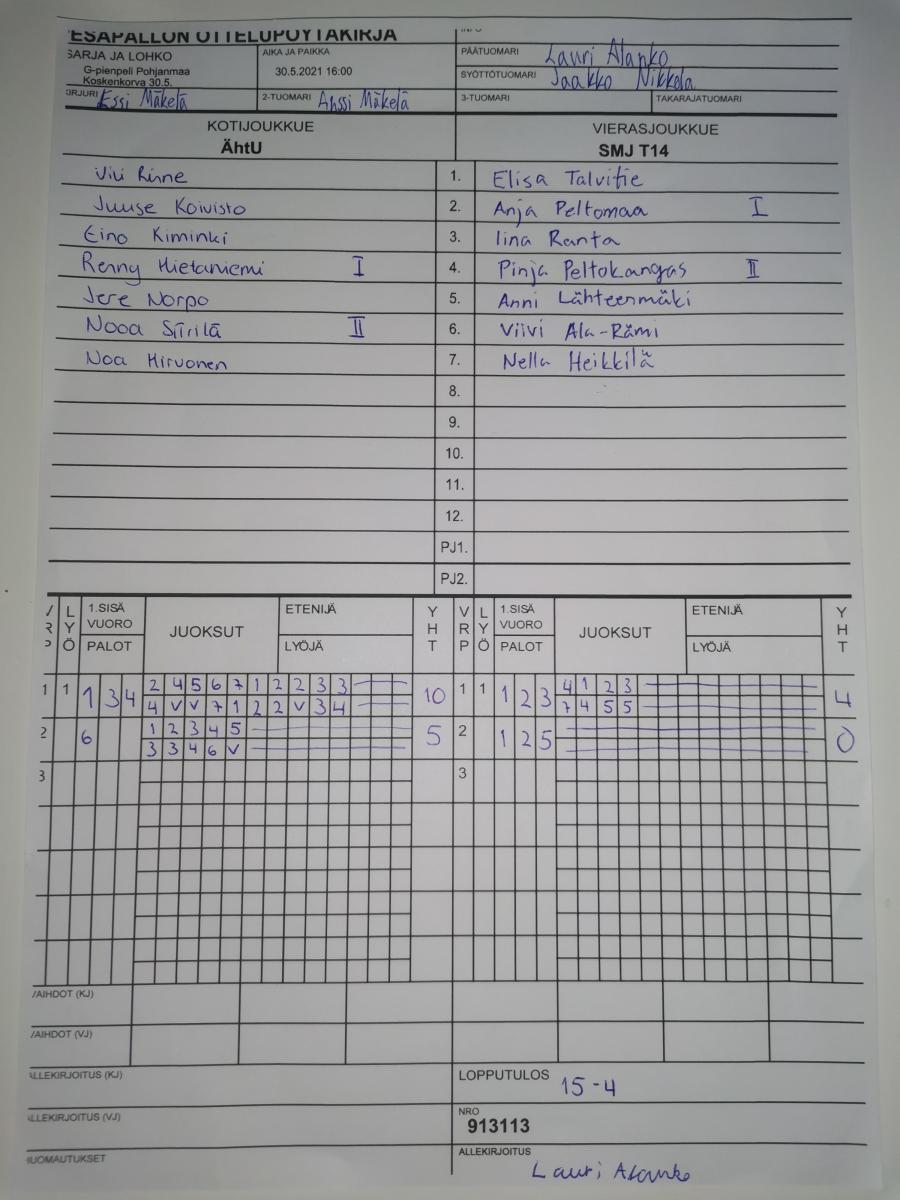 ESAPALLON OTTELUPÖYTÄKIRJA
SARJA JA LOHKO
G-pienpeli Pohjanmaa
Koskenkorva 30.5.
AIKA JA PAIKKA
30.5.2021 16:00
PÄÄTUOMARI Lauri Alanko
SYÖTTÖTUOMARI Jaakko Nikkola
IRJURI Essi Mäkelä
2-TUOMARI Anssi Mäkelä
3-TUOMARI
TAKARAJATUOMARI
KOTIJOUKKUE
ÄhtU
VIERASJOUKKUE
SMJ T14
Vili Rinne 1. Elisa Talvitie
Juuse Koivisto 2. Anja Peltomaa I
Eino Kiminki 3. Iina Ranta
Renny Hietaniemi I 4. Pinja Peltokangas II
Jere Norpo 5. Anni Lähteenmäki
Nooa Siirilä II 6. Viivi Ala-Rämi
Noa Hirvonen 7. Nella Heikkilä
8.
9.
10.
11.
12.
PJ1.
PJ2.
LYÖ 1.SISÄ VUORO PALOT JUOKSUT ETENIJÄ LYÖJÄ YHT VRP LYÖ 1.SISÄ VUORO PALOT JUOKSUT ETENIJÄ LYÖJÄ YHT
1 1 1 3 4 2 4 5 6 7 1 2 2 3 3 10 1 1 1 2 3 4 1 2 3 4
4 V V 7 1 2 2 V 3 4 7 4 5 5
2 6 1 2 3 4 5 5 2 1 2 5 0
3 3 4 6 V
3 3
VAIHDOT (KJ)
VAIHDOT (VJ)
ALLEKIRJOITUS (KJ)
LOPPUTULOS 15-4
ALLEKIRJOITUS (VJ)
NRO
913113
HUOMAUTUKSET
ALLEKIRJOITUS
Lauri Alanko